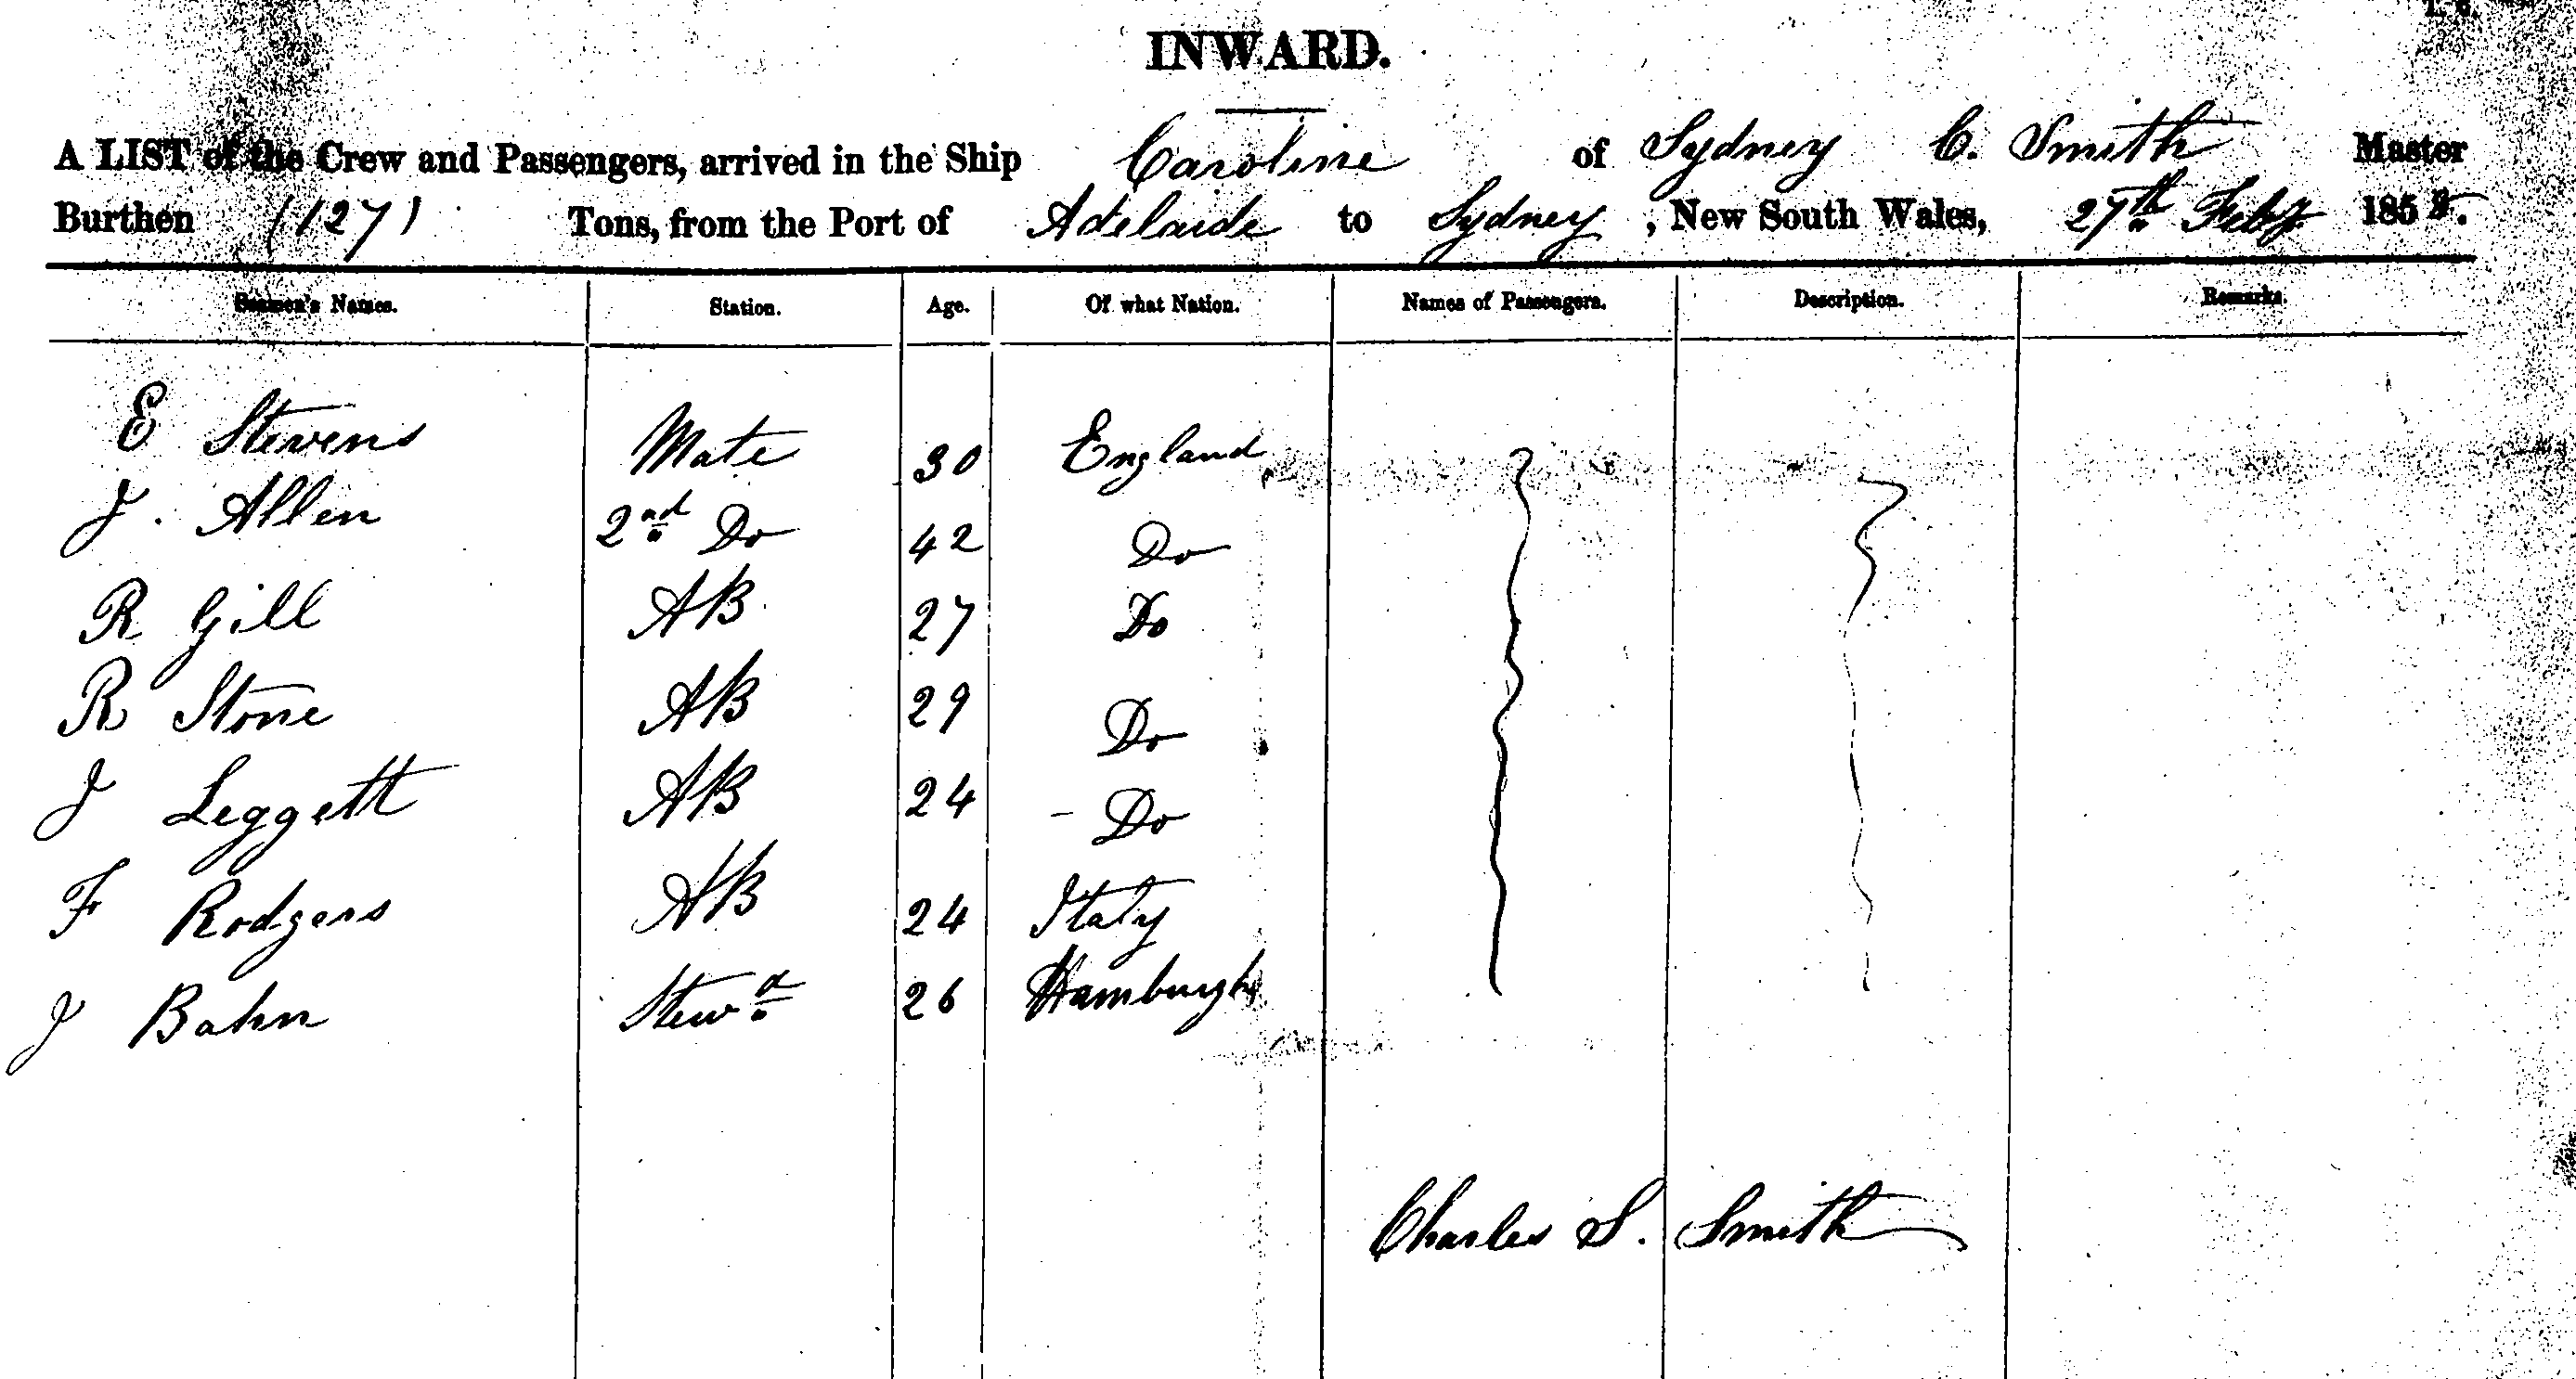 INWARD.
A LIST of the Crew and Passengers, arrived in the Ship Caroline of Sydney C. Smith Master
Burthen (127) Tons, from the Port of Adelaide to Sydney, New South Wales, 27th Feby 185
Seamen's Names. Station. Age. Of what Nation. Names of Passengers. Description. Remarks.
E Stevens Mate 30 England
J. Allen 2nd Do 42 Do
R Gill AB 27 Do
R Stone AB 29 Do
J Leggett AB 24 Do
F Rodgers AB 24 Italy
J Bahn Stewd 26 Hamburgh
Charles S. Smith